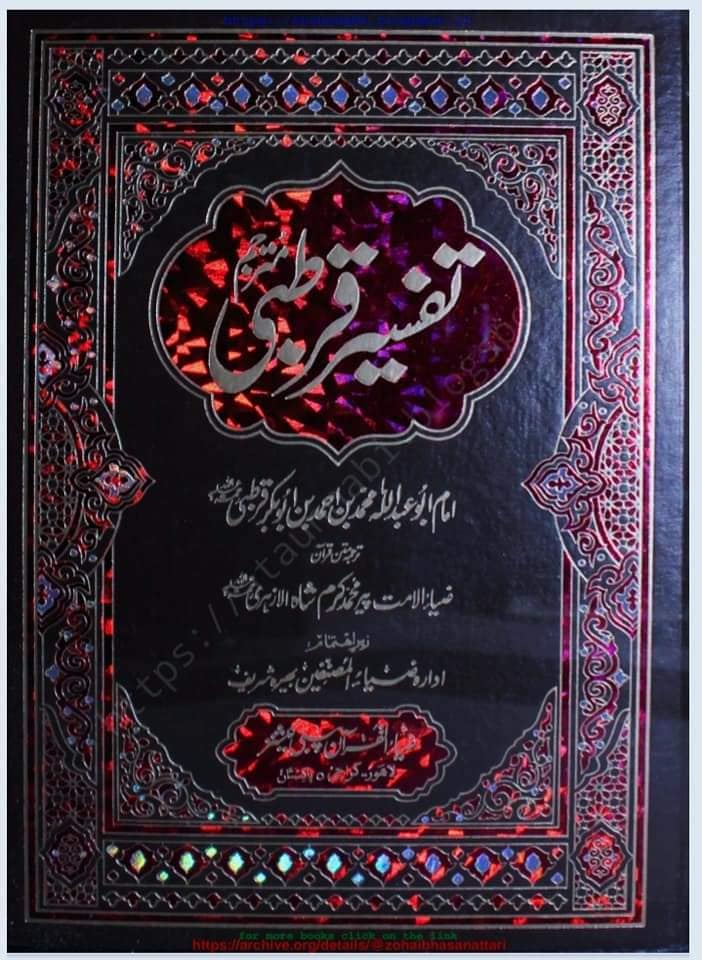 تفسیر قرطبی
مترجم
امام ابو عبداللہ محمد بن احمد بن ابوبکر قرطبی
ترجمہ متن قرآن
ضیاء الامت پیر محمد کرم شاہ الازہری
زیر اہتمام
ادارہ ضیاء المصنفین بھیرہ شریف
ضیاء القرآن پبلی کیشنز
لاہور ۔ کراچی ۔ پاکستان
for more books click on the link
https://archive.org/details/@zohaibhasanattari